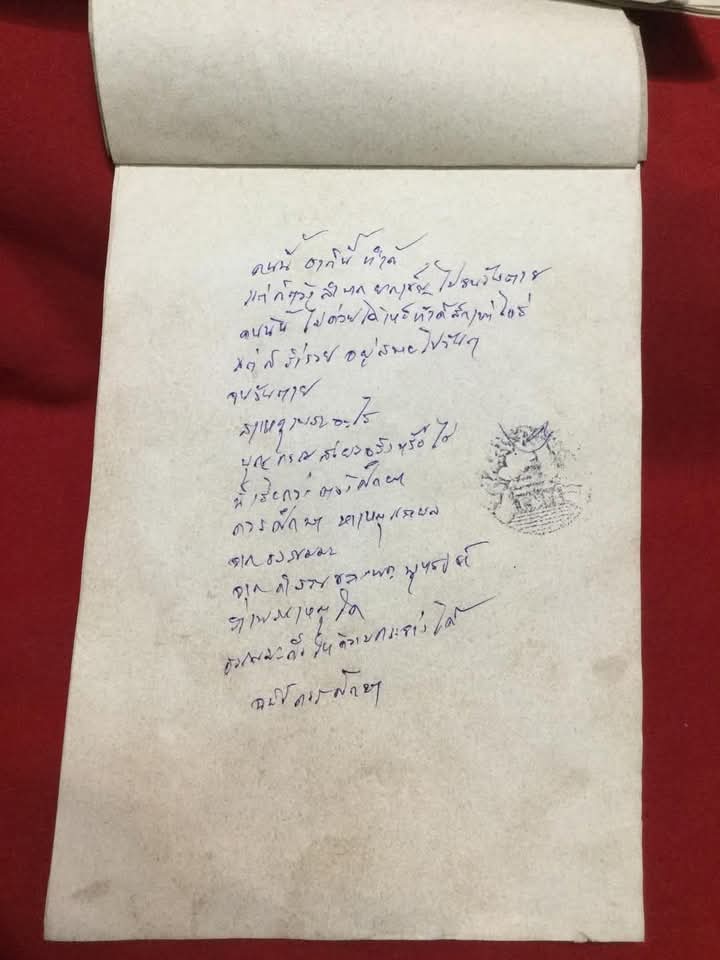 คนนี้ ชาตินี้ ทำดี
แต่ก็ต้อง ลำบาก ยากเข็ญ ไปจนวันตาย
คนนี้ ไม่ค่อยได้เห็นทำดีสักเท่าไดร่
แต่ก็ ร่ำรวย อยู่สบายไปวันๆ
จนวันตาย
สาเหตุเพราะอะไร
บุญกรรม มีจริงหรือไม่
นี้เรียกว่าต้องศึกษา
ควรศึกษา หาเหตุและผล
จากธรรมมะ
จากคำสอนของพระพุทธองค์
ว่าเพราะเหตุใด
ธรรมมะถึงให้ความกระจ่างได้
ควรศึกษา